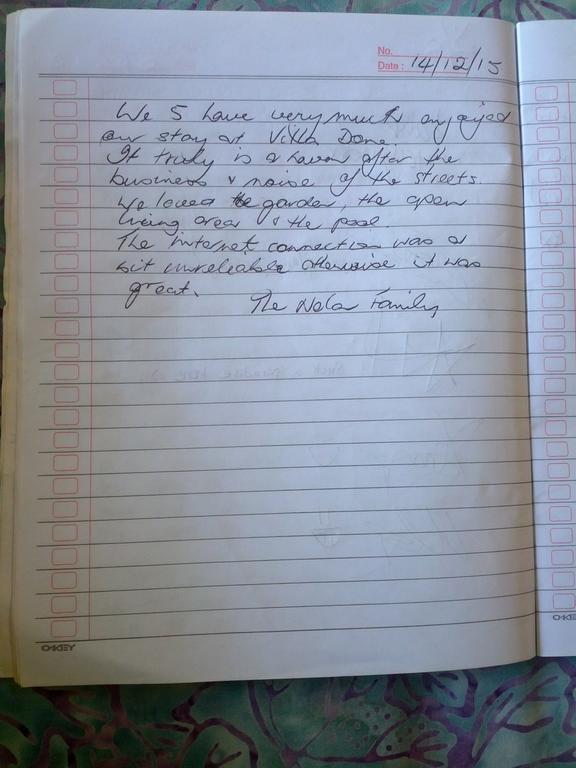 No.
Date : 14/12/15
We 5 have very much enjoyed
our stay at Villa Dane.
It truly is a haven after the
business & noise of the streets.
We loved the garden, the open
living area & the pool.
The internet connection was a
bit unreleable otherwise it was
great.
The Family
OAKEY